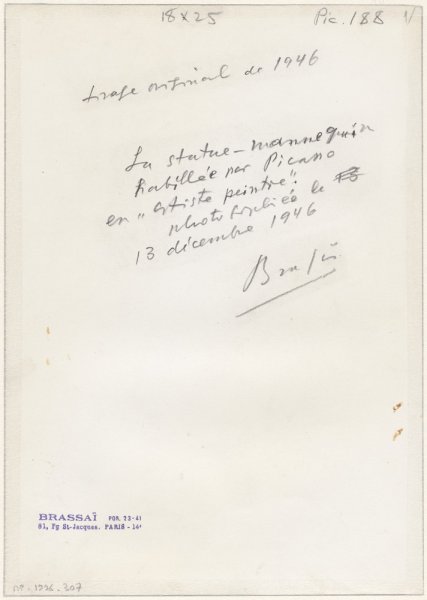 18x25
Pic. 188 1/
tirage original de 1946
La statue-mannequin
habillée par Picasso
en "artiste peintre".
photographiée le
13 décembre 1946
Brassaï
BRASSAÏ POR. 23-41
81, Fg St-Jacques. PARIS - 14e
MP-1996-307